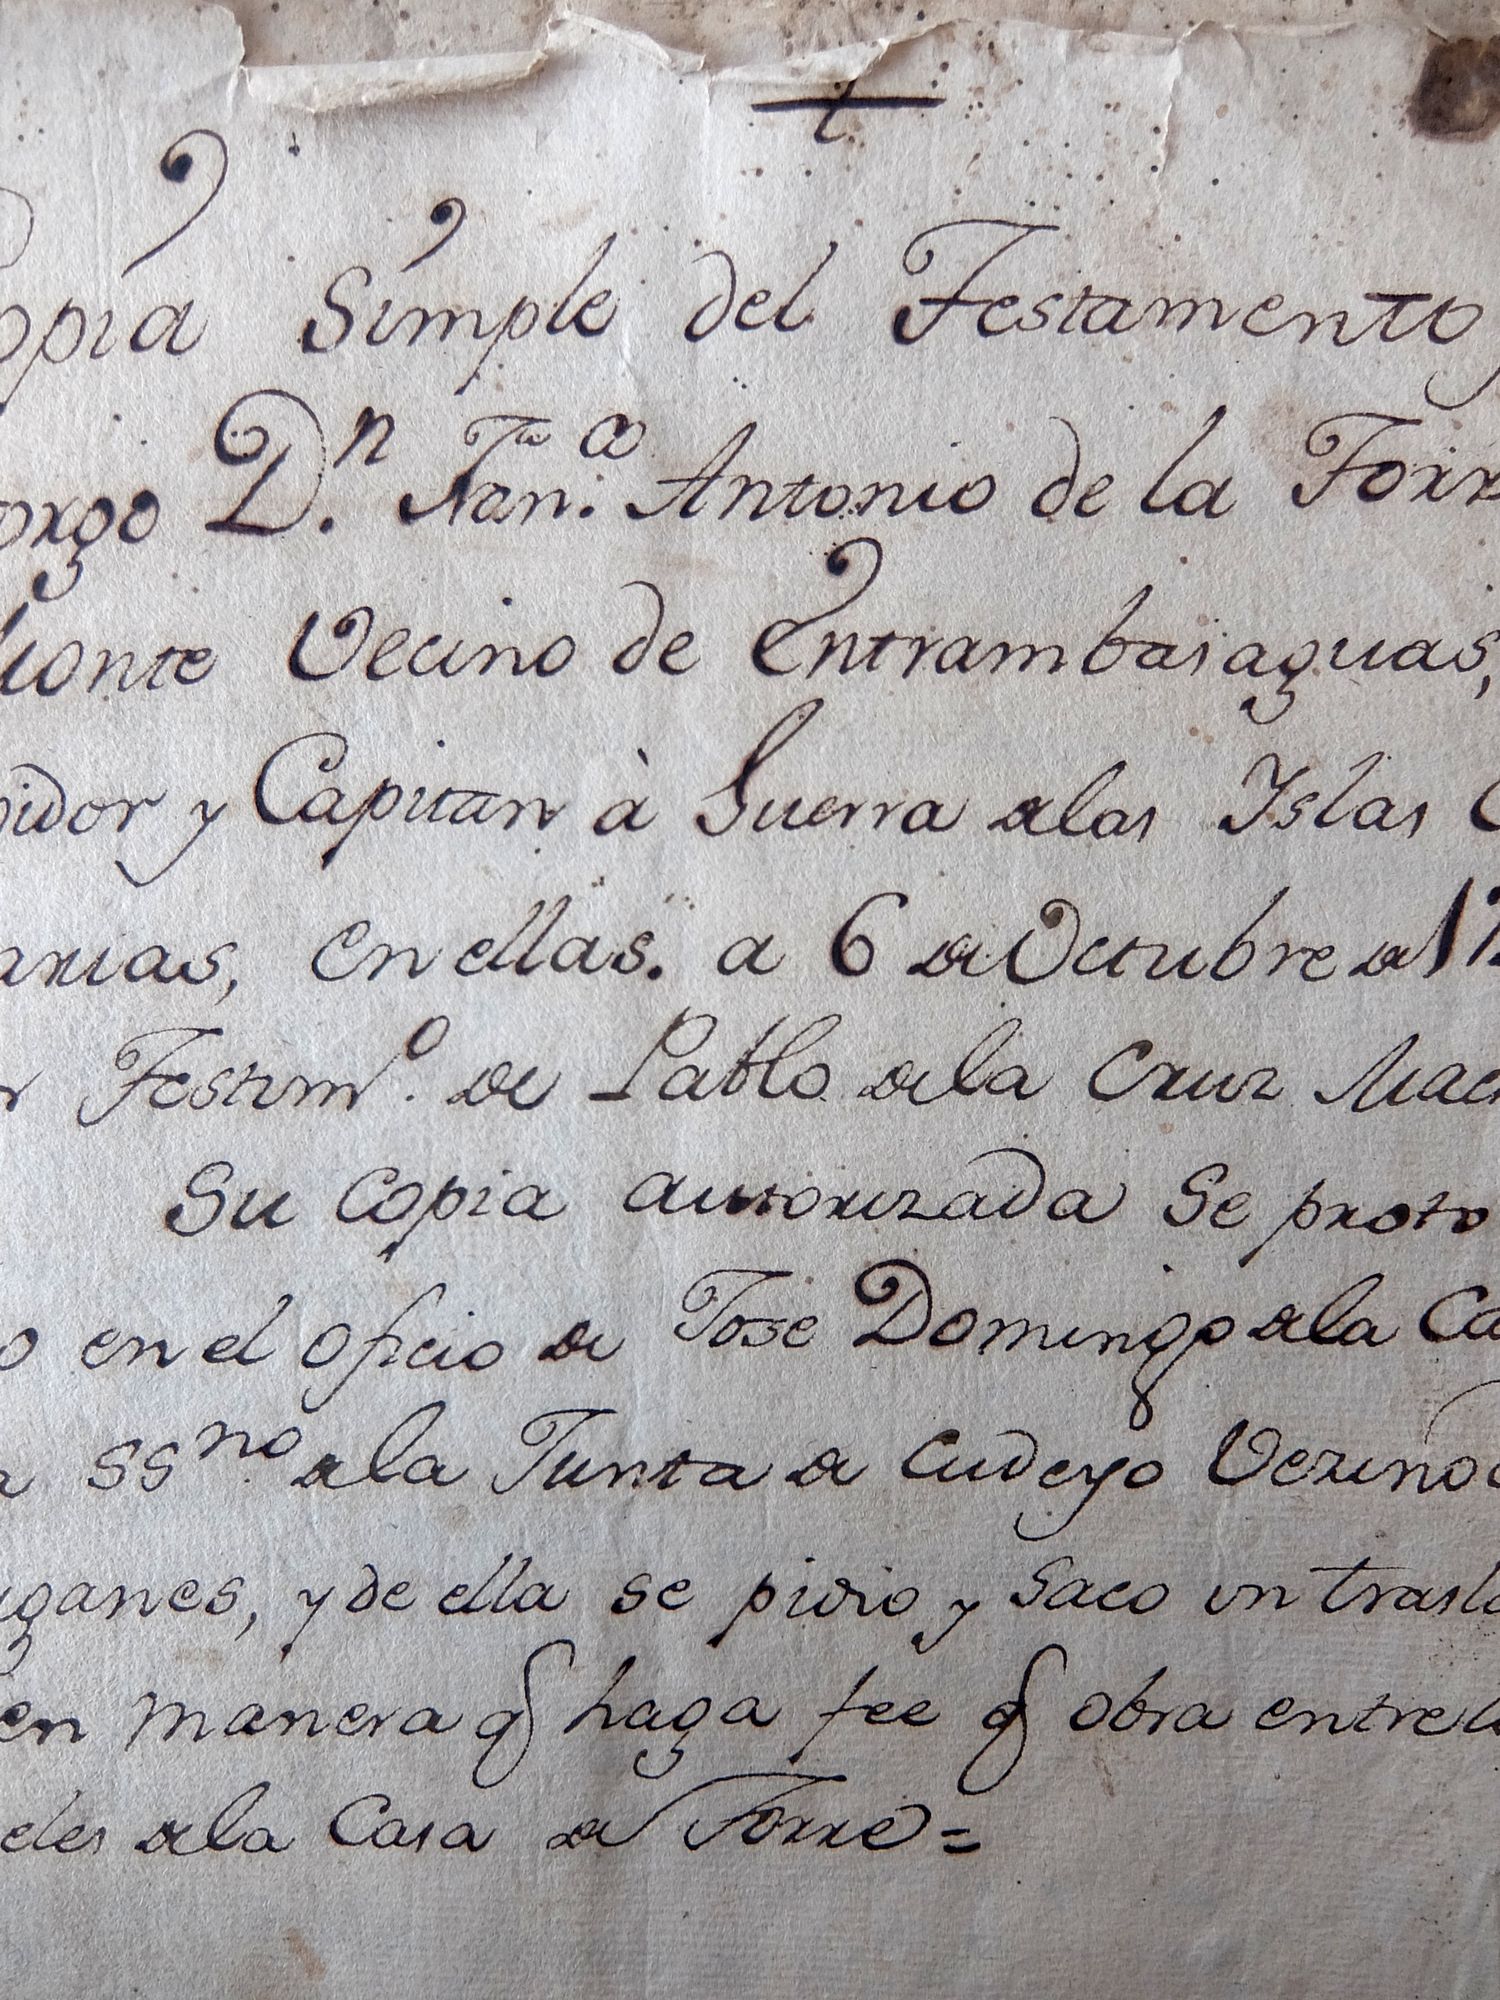 opia Simple del Testamento,
orgo D.n Fran.co Antonio de la Torr
Monte Vecino de Entrambasaguas,
idor y Capitan à Guerra de las Islas C
arias, en ellas. a 6 de Octubre de 17
Testim.o de Pablo de la Cruz Mach
Su copia autorizada se proto
o en el oficio de Jose Domingo de la Ca
SSno de la Junta de Cudeyo Vezino
ganes, y de ella se pidio y saco un trasla
en manera q haga fee q obra entre l
eles de la Casa de Torre =